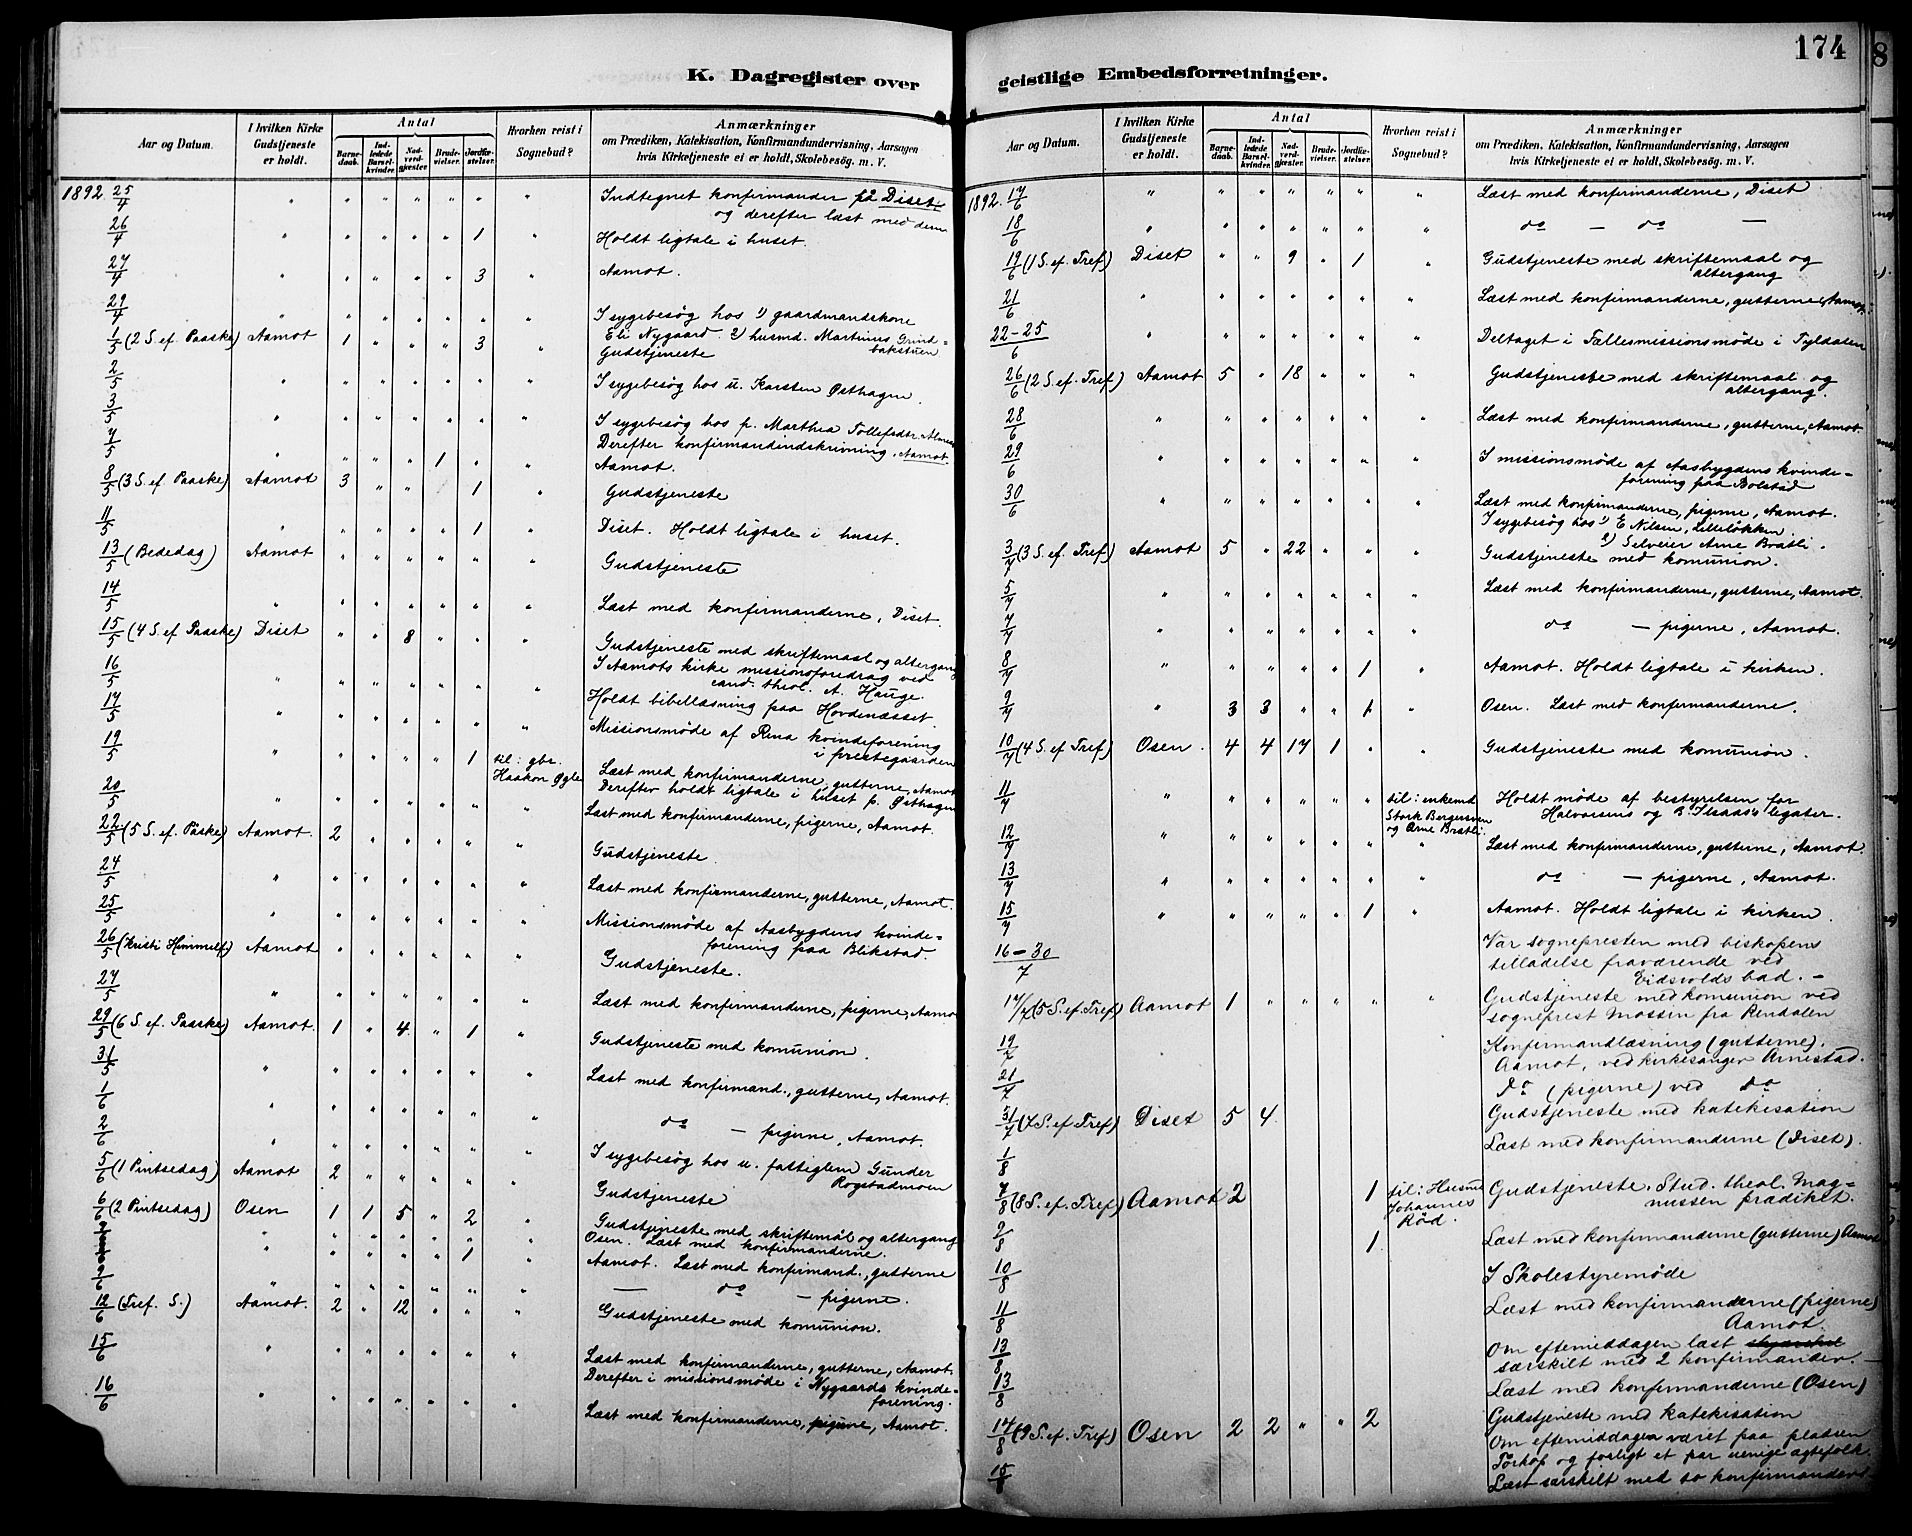 K. Dagregister over
Aar og Datum. I hvilken Kirke Gudstjeneste er holdt. Antal Barnedaab. Indledede Barselkvinder. Nadverdgjester. Brudevielser. Jordfæstelser. Hvorhen reist i Sognebud? Anmærkninger
om Prædiken, Katekisation, Konfirmandundervisning, Aarsagen
hvis Kirketjeneste ei er holdt, Skolebesög. m. V.
1892 25/4 " " " " " " " Indtegnet konfirmander på Diset
og derefter læst med dem
26/4 " " " " " 1 " Holdt ligtale i huset.
27/4 " " " " " 3 " Aamot.
29/4 " " " " " " " I sygebesøg hos 1) gaardmandskone
Eli Nygaard. 2) husmd. Martinus Grind=
bakstuen
1/5 (2 S. ef. Paaske) Aamot 1 " " " 3 " Gudstjeneste
2/5 " " " " " " " I sygebesøg hos u. Karsten Østhagen.
3/5 " " " " " " " I sygebesøg hos p. Marthea Tollefsdtr.
Derefter konfirmandindskrivning. Aamot.
4/5 " " " " 1 " " Aamot.
8/5 (3 S. ef. Paaske) Aamot 3 " " 1 " Gudstjeneste
11/5 " " " " " 1 " Diset. Holdt ligtale i huset.
13/5 (Bededag) Aamot " " " " " " Gudstjeneste
14/5 " " " " " " " Læst med konfirmanderne, Diset.
15/5 (4 S. ef. Paaske) Diset " " 8 " " " Gudstjeneste med skriftemaal og altergang
16/5 " " " " " " " I Aamots kirke missionsforedrag ved
cand. theol. A. Hauge.
17/5 " " " " " " " Holdt bibellæsning paa Hovdenæsset.
19/5 " " " " " 1 til: gbr. Haakon Øgle Missionsmøde af Rena kvindeforening
i prestegaarden
Læst med konfirmanderne, gutterne, Aamot
Derefter holdt ligtale i huset p. Østhagen
20/5 " " " " " " " Læst med konfirmanderne, pigerne, Aamot.
22/5 (5 S. ef. Påske) Aamot. 2 " " " " " Gudstjeneste.
24/5 " " " " " " " Læst med konfirmanderne, gutterne, Aamot.
25/5 " " " " " " " Missionsmøde af Aasbygdens kvinde=
forening paa Blikstad.
26/5 (Kristi Himmelf.) Aamot " " " " " " Gudstjeneste.
27/5 " " " " " " " Læst med konfirmanderne, pigerne, Aamo
29/5 (6 S. ef. Paaske) Aamot. 1 " 4 " 1 " Gudstjeneste med komunion.
31/5 " " " " " " " Læst med konfirmand., gutterne, Aamot.
1/6 " " " " " " " do — pigerne, Aamot.
2/6 " " " " " " " I sygebesøg hos u. fattiglem Gunder
Rogstadmoen
5/6 (1 Pintsedag) Aamot 2 " " " " " Gudstjeneste
6/6 (2 Pintsedag) Osen 1 1 5 " 2 " Gudstjeneste med skriftemål og altergang
" " " " " " " Osen. Læst med konfirmanderne.
" " " " " 1 " Aamot. Læst med konfirmand., gutterne
9/6 " " " " " " " — do — pigerne.
12/6 (Tref. S.) Aamot. 2 " 12 " " " Gudstjeneste med komunion.
15/6 " " " " " " " Læst med konfirmanderne, gutterne, Aamot.
Derefter i missionsmøde i Nygaards kvinde=
forening.
16/6 " " " " " " " Læst med konfirmanderne, pigerne, Aamot.
174
geistlige Embedsforretninger.
Aar og Datum. I hvilken Kirke Gudstjeneste er holdt. Antal Barnedaab. Indledede Barselkvinder. Nadverdgjester. Brudevielser. Jordfæstelser. Hvorhen reist i Sognebud? Anmærkninger
om Prædiken, Katekisation, Konfirmandundervisning, Aarsagen
hvis Kirketjeneste ei er holdt, Skolebesög. m. V.
1892. 17/6 " " " " " " " Læst med konfirmanderne, Diset
18/6 " " " " " " " do — do —
19/6 (1 S. ef. Tref) Diset " " 9 " 1 " Gudstjeneste med skriftemaal og
altergang
21/6 " " " " " " " Læst med konfirmanderne, gutterne, Aamot.
22-25/6 " " " " " " " Deltaget i Fællesmissionsmøde i Tyldalen
26/6 (2 S. ef. Tref.) Aamot 5 " 18 " " " Gudstjeneste med skriftemaal og
altergang.
28/6 " " " " " " " Læst med konfirmanderne, gutterne, Aamot.
29/6 " " " " " " " I missionsmøde af Aasbygdens kvinde=
forening paa Bolstad
30/6 " " " " " " " Læst med konfirmanderne, pigerne, Aamot.
I sygebesøg hos 1) E. Nilsen, Lilleløkken
2) Selveier Arne Bratli.
3/7 (3 S. ef. Tref) Aamot 5 " 22 " " " Gudstjeneste med komunion.
5/7 " " " " " " " Læst med konfirmanderne, gutterne, Aamot.
7/7 " " " " " " " do — pigerne, Aamot.
8/7 " " " " " 1 " Aamot. Holdt ligtale i kirken.
9/7 " 3 3 " " 1 " Osen. Læst med konfirmanderne.
10/7 (4 S. ef Tref) Osen. 4 4 17 1 " " Gudstjeneste med komunion.
11/7 " " " " " " til: enkemd Stork Bergersen og Arne Bratli. Holdt møde af bestyrelsen for
Halvorsens og legater.
12/7 " " " " " " " Læst med konfirmanderne, gutterne, Aamot.
13/7 " " " " " " " do — pigerne, Aamot.
15/7 " " " " " 1 " Aamot. Holdt ligtale i kirken.
16-30/7 Var sognepresten med biskopens
tilladelse fraværende ved
Eidsvolds bad. —
17/7 (5 S. ef. Tref) Aamot 1 " " " " " Gudstjeneste med komunion ved
sogneprest Mossin fra Rendalen
19/7 Konfirmandlæsning (gutterne).
Aamot, ved kirkesanger Arnestad.
21/7 do (pigerne) ved do
31/7 (7 S. ef Tref) Diset 5 4 Gudstjeneste med katekisation
1/8 Læst med konfirmanderne (Diset).
7/8 (8 S. ef. Tref) Aamot 2 1 til: Husmd Johannes Rød. Gudstjeneste. Stud. theol. Mag=
nussen prædiket.
2/8 1 Læst med konfirmanderne (gutterne) Aamot
10/8 I Skolestyremøde
11/8 Læst med konfirmanderne (pigerne)
Aamot.
13/8 Om eftemiddagen læst
særskilt med 2 konfirmander. —
13/8 Læst med konfirmanderne (Osen)
14/8 (9 S. ef. Tref) Osen 2 2 " " 2 Gudstjeneste med katekisation
Om eftemiddagen været paa pladsen
og forligt et par uenige ægtefolk.
15/8 Læst særskilt med to konfirmander